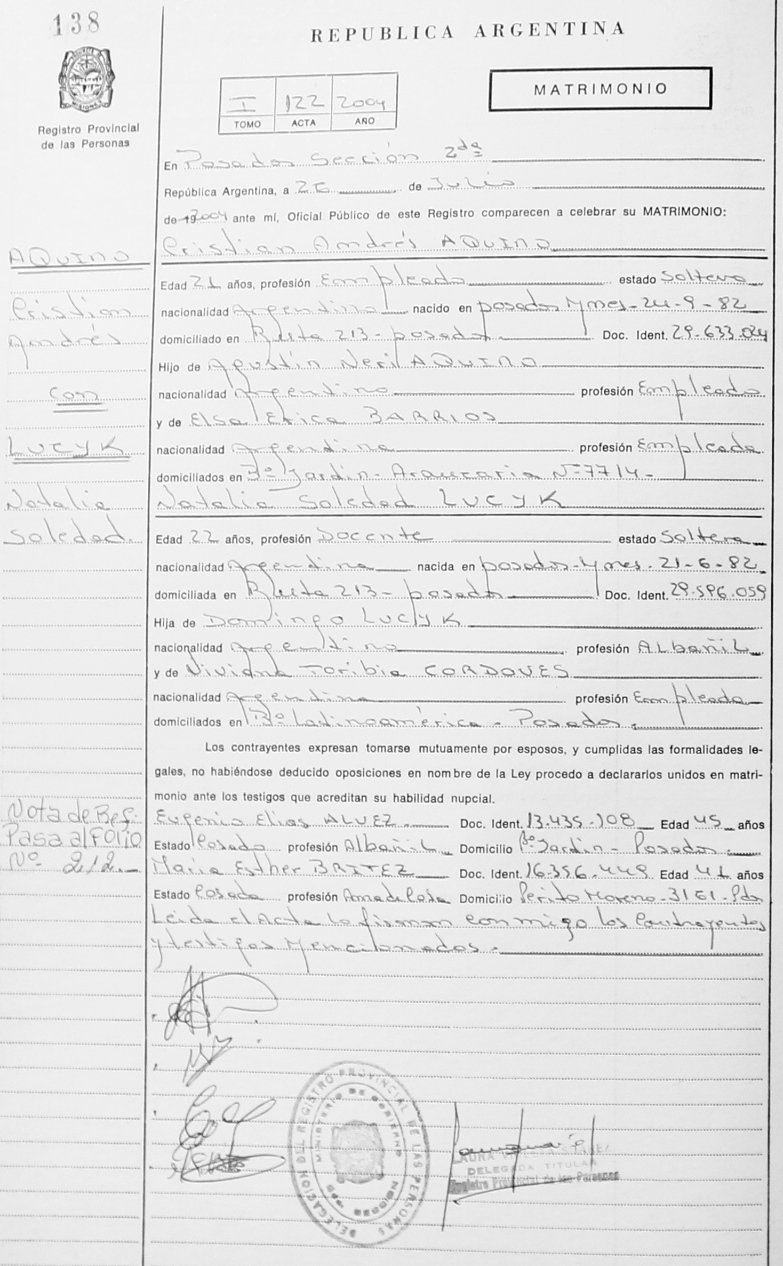 138
REPUBLICA ARGENTINA
I 122 2004
TOMO ACTA AÑO
MATRIMONIO
Registro Provincial
de las Personas
En Posadas Sección 2da
República Argentina, a 26 de Julio
de 2004 ante mí, Oficial Público de este Registro comparecen a celebrar su MATRIMONIO:
Cristian Andrés AQUINO
Edad 21 años, profesión Empleado estado Soltero
nacionalidad Argentino nacido en posadas Mnes-24-9-82
domiciliado en Ruta 213-posadas Doc. Ident. 29.633.024
Hijo de Agustín Neri AQUINO
nacionalidad Argentino profesión Empleado
y de Elsa Erica BARRIOS
nacionalidad Argentina profesión Empleada
domiciliados en Bº Jardin-Araucaria Nº7714-
Natalia Soledad LUCYK
Edad 22 años, profesión Docente estado Soltera
nacionalidad Argentina nacida en posadas-Mnes. 21-6-82
domiciliada en Ruta 213-posadas Doc. Ident. 29.596.059
Hija de Domingo LUCYK
nacionalidad Argentino profesión ALbañiL
y de Viviana Toribia CORDOVES
nacionalidad Argentina profesión Empleada
domiciliados en Bº Latinoamérica-Posadas.
Los contrayentes expresan tomarse mutuamente por esposos, y cumplidas las formalidades le-
gales, no habiéndose deducido oposiciones en nombre de la Ley procedo a declararlos unidos en matri-
monio ante los testigos que acreditan su habilidad nupcial.
Eugenio Elias ALVEZ Doc. Ident. 13.435.108 Edad 45 años
Estado Casado profesión Albañil Domicilio Bº Jardin-Posadas.
Maria Esther BRITEZ Doc. Ident. 16.356.449 Edad 41 años
Estado Casada profesión Ama de Casa Domicilio Perito Moreno-3161-Pdas
Leida el Acta la firman conmigo los Contrayentes
y testigos Mencionados.
AQUINO
Cristian
Andrés
Con
LUCYK
Natalia
Soledad.
Nota de Ref.
Pasa al Folio
Nº 212.
DELEGACION DEL REGISTRO PROVINCIAL DE LAS PERSONAS
MINISTERIO DE GOBIERNO
LAURA
DELEGADA TITULAR
Registro Provincial de las Personas